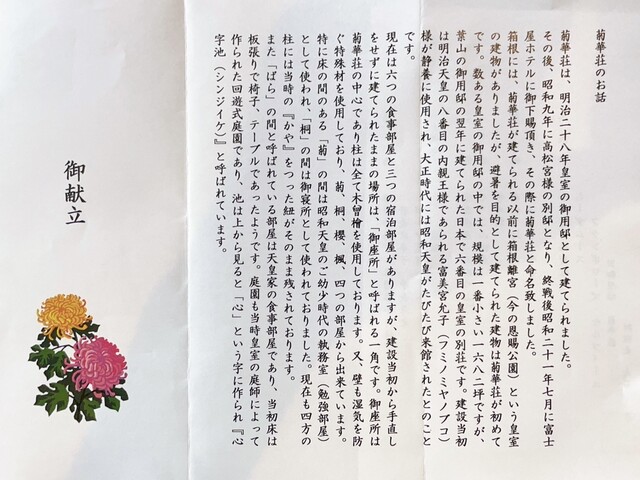 菊華荘のお話
菊華荘は、明治二十八年皇室の御用邸として建てられました。
その後、昭和九年に高松宮様の別邸となり、終戦後昭和二十一年七月に富士
屋ホテルに御下賜頂き、その際に菊華荘と命名致しました。
箱根には、菊華荘が建てられる以前に箱根離宮（今の恩賜公園）という皇室
の建物がありましたが、避暑を目的として建てられた建物は菊華荘が初めて
です。数ある皇室の御用邸の中では、規模は一番小さい一六八二坪ですが、
葉山の御用邸の翌年に建てられた日本で六番目の皇室の別荘です。建設当初
は明治天皇の八番目の内親王様であられる富美宮允子（フミノミヤノブコ）
様が静養に使用され、大正時代には昭和天皇がたびたび来館されたとのこと
です。
現在は六つの食事部屋と三つの宿泊部屋がありますが、建設当初から手直し
をせずに建てられたままの場所は、「御座所」と呼ばれる一角です。御座所は
菊華荘の中心であり柱は全て木曽檜を使用しております。又、壁も湿気を防
ぐ特殊材を使用しており、菊、桐、櫻、楓、四つの部屋から出来ています。
特に床の間のある「菊」の間は昭和天皇のご幼少時代の執務室（勉強部屋）
として使われ、「桐」の間は御寝所として使われておりました。現在も四方の
柱には当時の『かや』をつった紐がそのまま残されております。
また「ばら」の間と呼ばれている部屋は天皇家の食事部屋であり、当初床は
板張りで椅子、テーブルであったようです。庭園も当時皇室の庭師によって
作られた回遊式庭園であり、池は上から見ると「心」という字に作られ『心
字池（シンジイケ）』と呼ばれています。
御献立